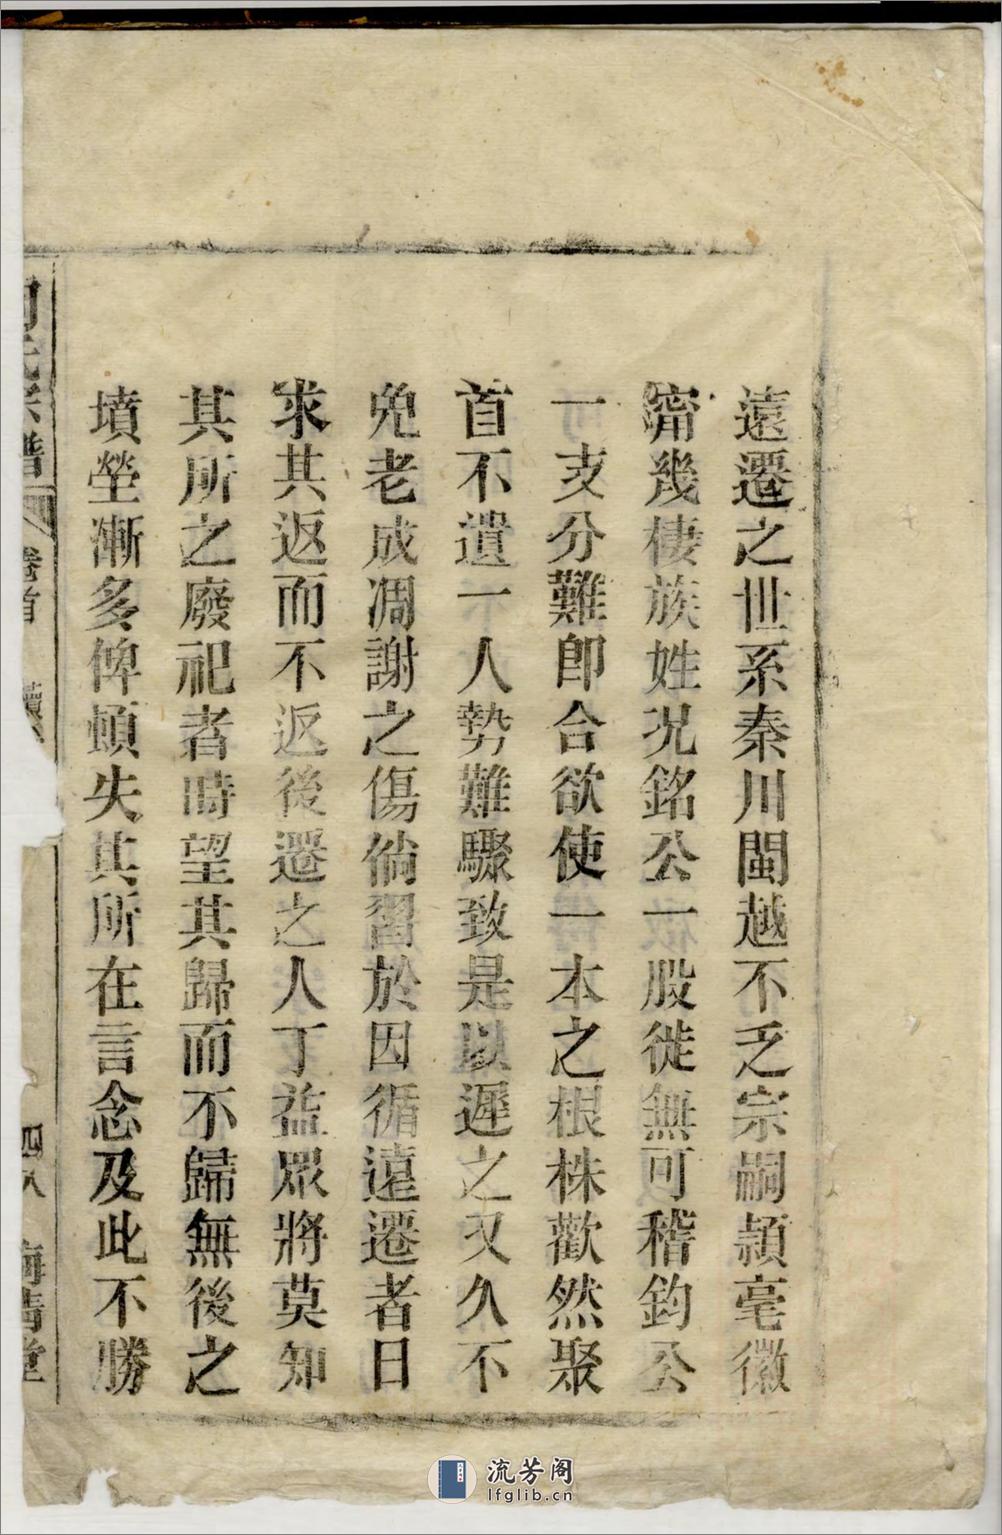 遠遷之世系秦川閩越不乏宗嗣頴亳徽
甯幾棲族姓况銘公一股徙無可稽鈞公
一支分難即合欲使一本之根株歡然聚
首不遺一人勢難驟致是以遲之又久不
免老成凋謝之傷倘習於因循遠遷者日
求其返而不返後遷之人丁益眾將莫知
其所之廢祀者時望其歸而不歸無後之
墳塋漸多俾頓失其所在言念及此不勝
氏宗譜
卷首
四八
海清堂
流芳阁
lfglib.cn